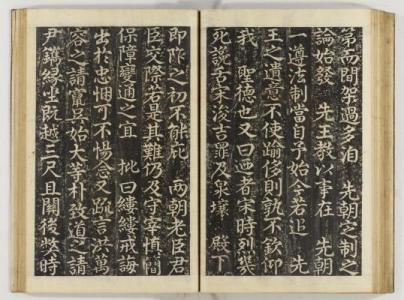 第而間架過多洎 先朝定制之
論始發 先王教以事在 先朝
一遵法制當自予始今若追 先
王之遺意不使踰侈則孰不欽仰
我 聖德也又曰迺者宋時列㦲
死說者宋浚吉罪及泉壤 殿下
即阼之初不能庇 兩朝老臣君
臣交際若是其難仍及守宰慎簡
保障變通之宜 批曰縷縷戒誨
出於忠悃可不惕念又疏言洪萬
容之請竄呂始大等朴致道之請
尹鑴緣坐既越三尺且關後弊時